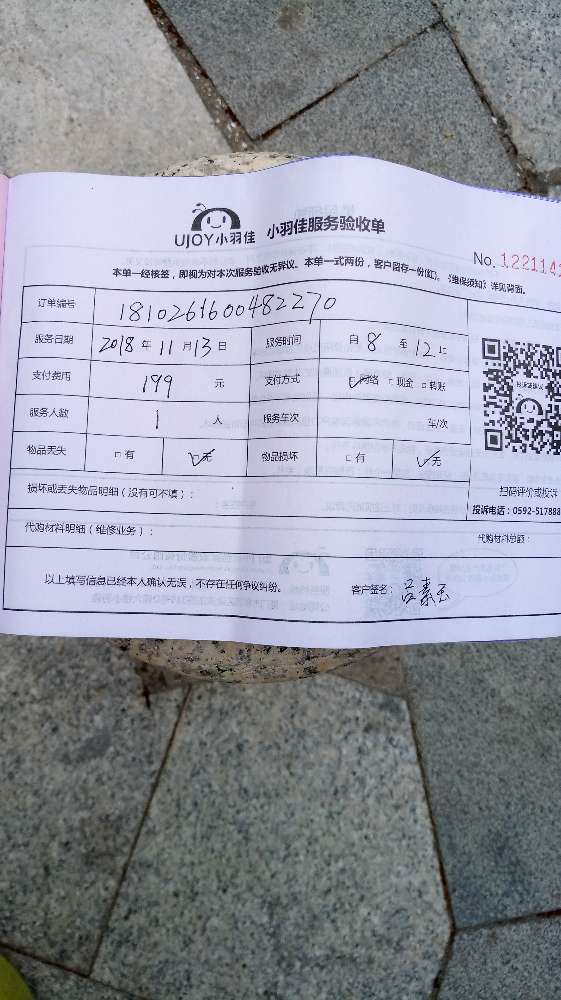 UJOY小羽佳 小羽佳服务验收单
No. 122114
本单一经核签，即视为对本次服务验收无异议。本单一式两份，客户留存一份(红)。《维保须知》详见背面。
订单编号 1810261600482270
服务日期 2018 年 11 月 13 日 服务时间 自 8 至 12 止
支付费用 199 元 支付方式 ☑网络 □现金 □转账
服务人数 1 人 服务车次 车/次
物品丢失 □有 ☑无 物品损坏 □有 ☑无
扫码评价或投诉
损坏或丢失物品明细（没有可不填）：
投诉电话：0592-517888
代购材料明细（维修业务）： 代购材料总额：
以上填写信息已经本人确认无误，不存在任何争议纠纷。 客户签名：吕素玉